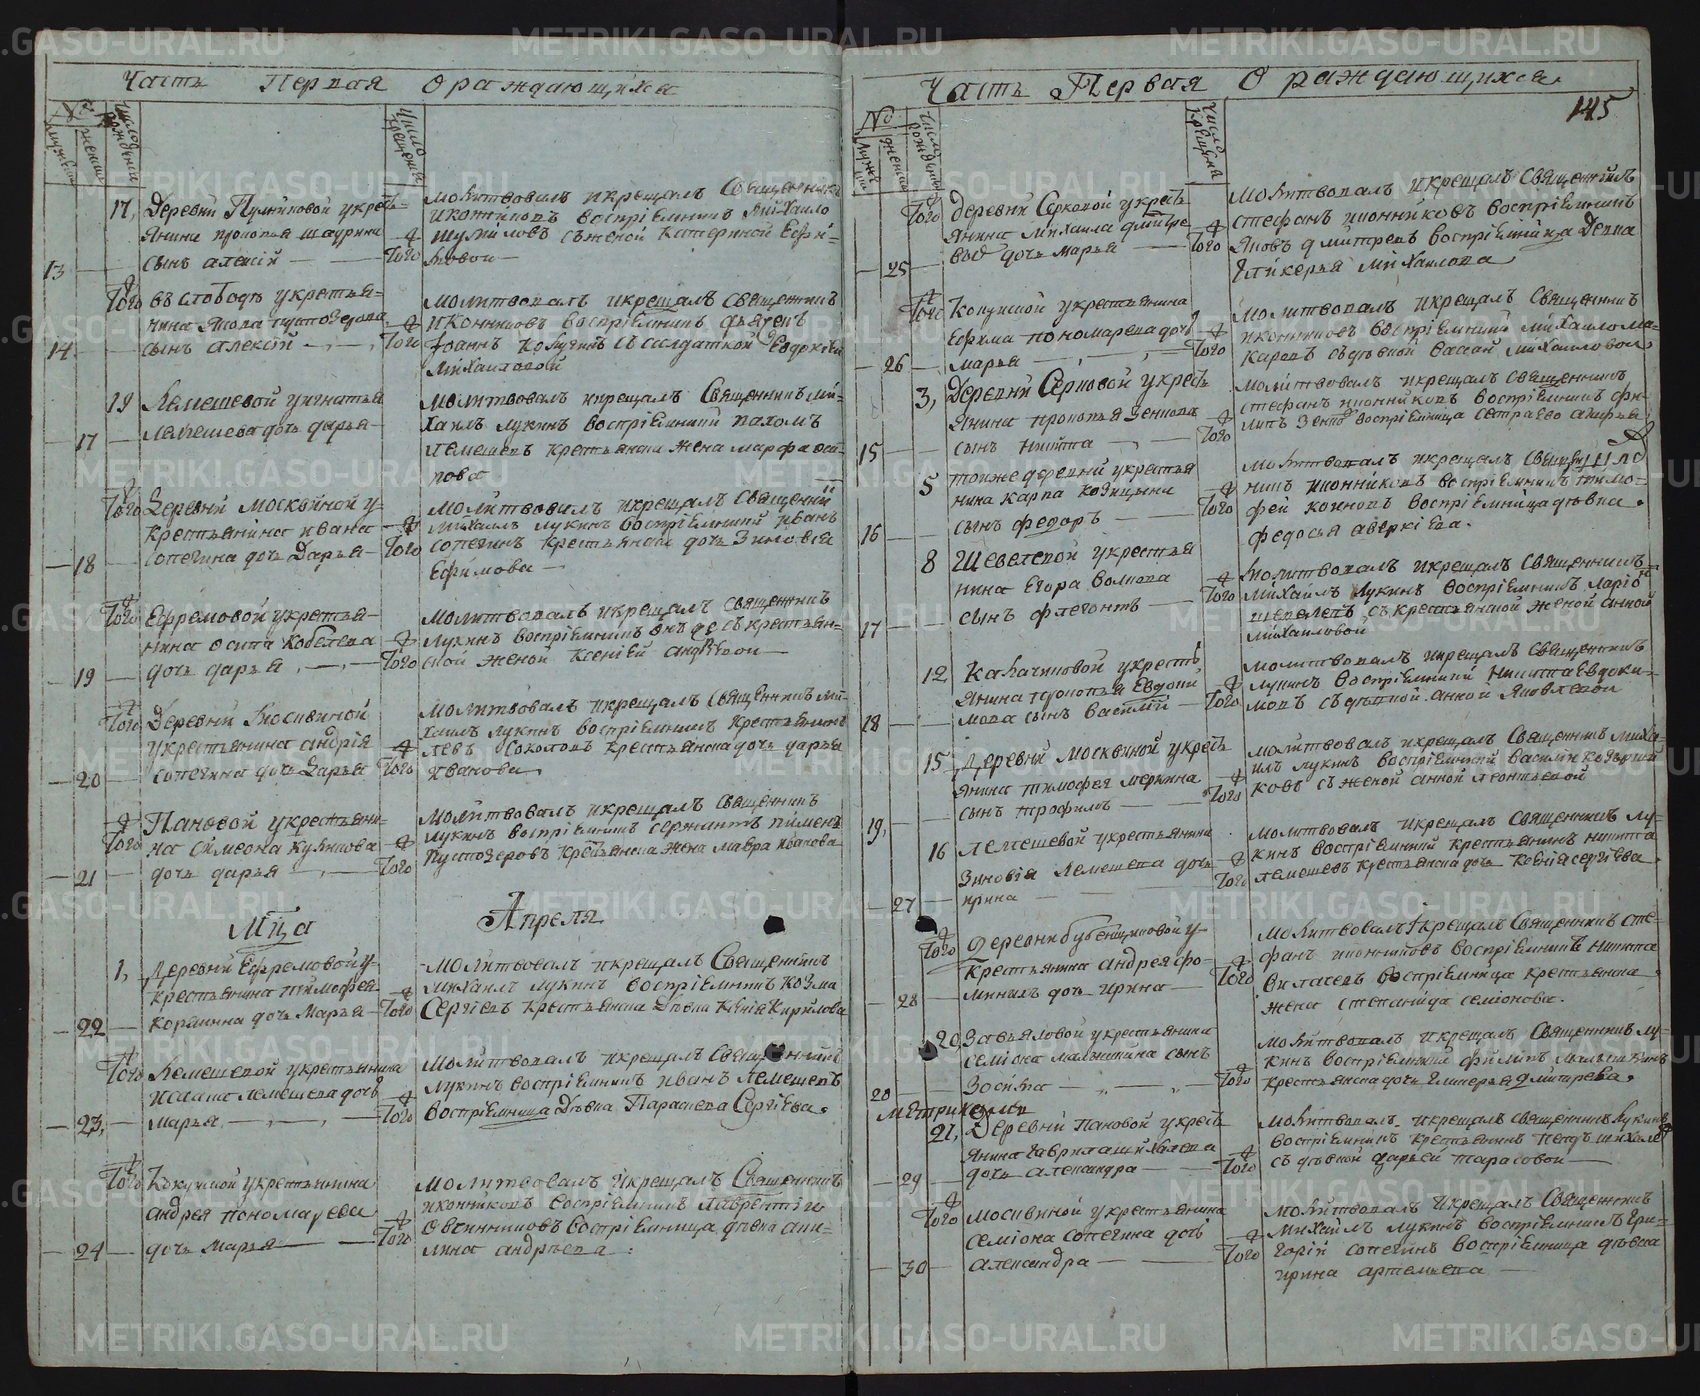 Часть Первая О раждающихся
№
Число рождения
Число крещения
мужска
женска
17, Деревни Пульниковой у кресть-
янина прокопья шаурина
13 сынъ алексiй
Того
молитвовалъ и крещалъ Священникъ
иконниковъ воспрiемникъ Михаило
шумиловъ съ женой катериной Ефи-
мовои
Того въ слободѣ у крестья-
14 сынъ алексiй
Того
молитвовалъ и крещалъ священникъ
иконниковъ воспрiемникъ дьячекъ
Iоаннъ съ солдаткой Евдокiей
Михаиловой
19 Лемешевой у игнатья
17 лемешева дочь дарья
молитвовалъ и крещалъ Священникъ Ми-
хаилъ лукинъ воспрiемникъ пахомъ
лемешевъ крестьянска жена марфа оси-
пова
Того Деревни москвиной у
крестьянина ивана
18 сопегина дочь Дарья
Того
молитвовалъ и крещалъ священникъ
михаилъ лукинъ воспрiемникъ иванъ
сопегинъ крестьянска дочь Зиновiя
Ефимова
Того Ефремовой у крестья-
нина осипа кобелева
19 дочь дарья
Того
молитвовалъ и крещалъ священникъ
лукинъ воспрiемникъ съ крестьян-
ской женой Ксенiей андреевои
Того Деревни Мосивиной
у крестьянина андрiя
20 сопегина дочь Дарья
Того
молитвовалъ и крещалъ священникъ ми-
хаилъ лукинъ воспрiемникъ крестьянинъ
левъ Соколовъ крестьянска дочь дарья
иванова
Того Пановой у крестьяни-
на симеона куликова
21 дочь дарья
Того
молитвовалъ и крещалъ священникъ
лукинъ воспрiемникъ сержантъ пименъ
Пустозеровъ крестьянска жена мавра иванова
Мца Апреля
1, деревни Ефремовой у
крестьянина тимофея
22 дочь Марья
Того
молитвовалъ и крещалъ Священникъ
михаилъ лукинъ воспрiемникъ козма
Сергѣевъ крестьянска Дѣвка Ксенiя Кирилова
Того Лемешевой у крестьянина
лемешева дочь
23, марья
Того
молитвовалъ и крещалъ Священникъ
лукинъ воспрiемникъ иванъ лемешевъ
воспрiемница Дѣвка Парасковa Сергѣева.
Того Кокуиской у крестьянина
андрея пономарева
24 дочь Марья
Того
молитвовалъ и крещалъ Священникъ
иконниковъ воспрiемникъ лаврентiи
овчинниковъ воспрiемница дѣвка аки-
лина андрѣева
Часть Первая О раждающихся.
145
№
Число рождения
Число крещения
Того деревни Серковой у кресть
янина михаила дмитре
25 выхъ дочь марья
Того
молитвовалъ и крещалъ священникъ
стефанъ иконниковъ воспрiемникъ
Яковъ дмитревъ воспрiемница Девка
Гликерья михаилова
Того Кокуиской у крестьянина
Ефима пономарева дочь
26 марья
Того
молитвовалъ и крещалъ Священникъ
иконниковъ воспрiемникъ михаило ма-
каровъ съ дѣвкой васой михаиловои
3, Деревни Серковой у кресть
янина прокопья Зенковъ
15 сынъ никита
Того
молитвовалъ и крещалъ священникъ
стефанъ иконниковъ воспрiемникъ фи-
липъ воспрiемница сестра его
5 тоиже деревни у крестья
нина карпа козицына
16 сынъ федоръ
Того
молитвовалъ и крещалъ Священ
никъ иконниковъ воспрiемникъ тимо-
фей воспрiемница дѣвка
федосья аверкiева.
8 Шевелевой у крестья
нина Егора волкова
17 сынъ флегонтъ
Того
молитвовалъ и крещалъ Священникъ
михаилъ лукинъ воспрiемникъ ларiо
шевелевъ съ крестьянской женой анной
михаиловой
12 Калачиковой у кресть
янина прокопья Евдоки
18 мова сынъ василiй
Того
молитвовалъ и крещалъ Священникъ
лукинъ воспрiемникъ никита Евдоки-
мовъ съ дѣвкой анной Яковлевой
15 Деревни москвиной у кресть
янина тимофея меркина
19, сынъ трофимъ
Того
молитвовалъ и крещалъ Священникъ миха-
илъ лукинъ воспрiемникъ василiи
съ женой анной леонтьевой
16 лемешевой у крестьянина
Зиновiя лемешева дочь
27 ирина
Того
молитвовалъ и крещалъ Священникъ лу-
кинъ воспрiемникъ крестьянинъ никита
лемешевъ крестьянска дочь ксенiя сергѣева.
Того Деревни бубенщиковой у
крестьянина андрея фо-
28 миныхъ дочь ирина
Того
молитвовалъ и крещалъ Священникъ сте-
фанъ иконниковъ воспрiемникъ никита
воспрiемница крестьянска
жена степанида семiонова.
20 Завьяловой у крестьянина
семiона сынъ
20 Зосима
Того
молитвовалъ и крещалъ Священникъ лу-
кинъ воспрiемникъ филипъ
крестьянска дочь Гликерья дмитрева.
Метрикамъ
21, Деревни Пановой у кресть
янина гаврила
29 дочь александра
Того
молитвовалъ и крещалъ священникъ лукинъ
воспрiемникъ крестьянинъ
съ дѣвкой дарьей тарасовои
Того мосивиной у крестьянина
семiона сопегина дочь
30 александра
Того
молитвовалъ и крещалъ Священникъ
Михаилъ лукинъ воспрiемникъ гри-
горiй сопегинъ воспрiемница дѣвка
ирина артемьева
METRIKI.GASO-URAL.RU